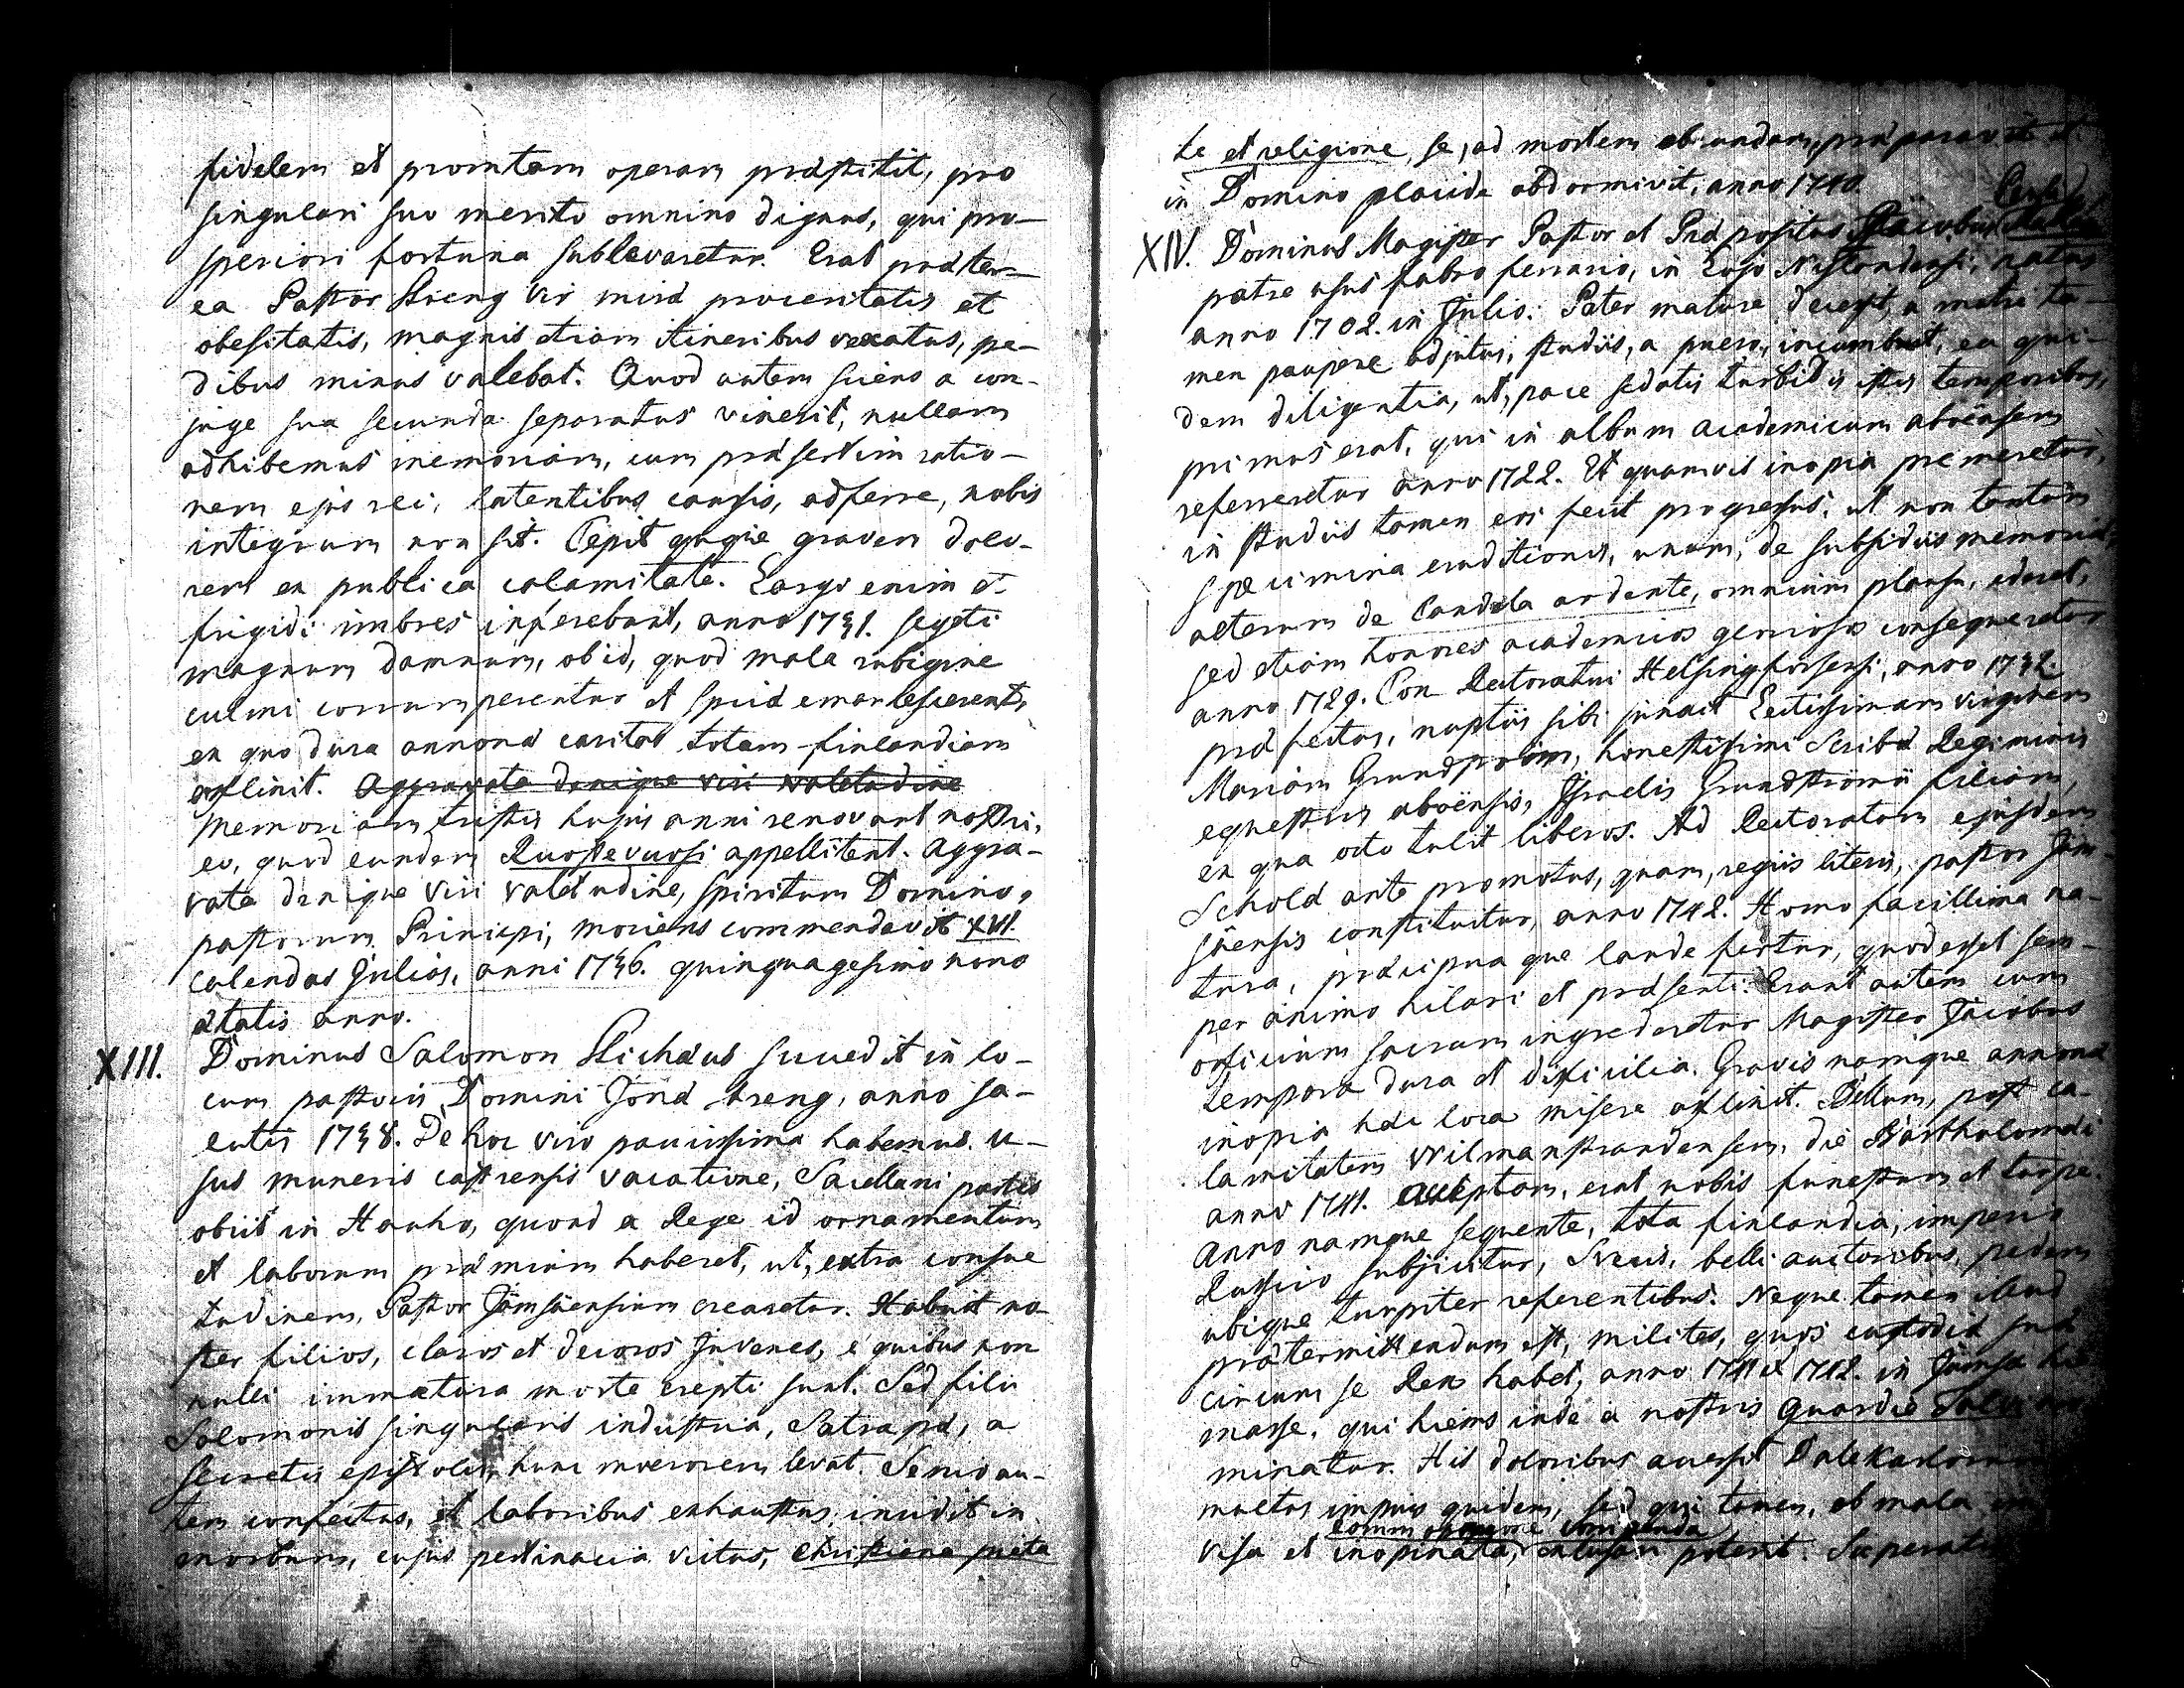 fidelem et promtam operam præstitit, pro
singulari suo merito omnino dignus, qui pro-
speriori fortuna sublevaretur. Erat præter-
ea Pastor Streng vir miræ proceritatis et
obesitatis, magnis etiam itineribus vexatus, pe-
dibus minus valebat. Quod autem sciens a con-
juge sua secunda separatus vixerit, nullam
adhibemus memoriam, cum præsertim ratio-
nem ejus rei, latentibus causis, adferre, nobis
integrum non sit. Cepit quoque gravem dolo-
rem ex publica calamitate. Largi enim et
frigidi imbres inferebant, anno 1731. segeti
magnum damnum, ob id, quod mala rubigine
culmi corrumperentur et spicæ emarcescerent,
ex quo dura annonæ caritas totam finlandiam
adflixit. Aggravata denique viri valetudine
Memoriam tristis hujus anni renovant nostri,
eo, quod eundem Ruostevuosi appellitent. Aggra-
vata denique viri valetudine, spiritum Domino,
pastorum Principi, moriens commendavit XVI.
calendas Julias, anni 1736. quinquagesimo nono
ætatis anno.
XIII. Dominus Salomon Stichæus succedit in lo-
cum pastoris Domini Jonæ Streng, anno sa-
lutis 1738. De hoc viro paucissima habemus. u-
sus muneris castrensis vacatione, Sacellani partes
obiit in Hauho, quoad a Rege id ornamentum
et laborum præmium haberet, ut, extra consue
tudinem, Pastor Jämsäensium crearetur. Habuit no-
ster filios, claros et decoros Juvenes, e quibus non
nulli immatura morte erepti sunt. Sed filii
Solomonis singularis industria, Satrapæ, a
secretis epistolis, hunc moerorem levat. Senio au-
tem confectus, et laboribus exhaustus, incidit in
morbum, cujus pertinacia victus, christiana pieta
te et religione, se, ad mortem obeundam, præparavit et
in Domino placide obdormivit, anno 1740.
XIV. Dominus Magister Pastor et Præpositus Jacobus
patre usus fabro ferrario, in Lojo Nystondensi, natus
anno 1702. in Julio. Pater mature decessit, a matre ta-
men paupere adjutus, studiis, a puero, incumbuit, ea qui-
dem diligentia, ut, pace sedatis turbidis istis temporibus,
primus erat, qui in album academicum aboënsem
referreretur anno 1722. Et quamvis inopia premeretur,
in studiis tamen eos fecit progressus, ut non tantum
specimina eruditionis, unum, de subsidiis memoriæ,
alterum de Candela ardente, omnium plausu, ederet,
sed etiam honores academicos generosos consequeretur
anno 1729. Con Rectoratui Helsingforsensi, anno 1732.
præfectus, nuptiis sibi junxit Lectissimam virginem
Mariam Grundström, honestissimi Scribæ Regiminis
equestris aboënsis, Israelis Grundströmii filiam,
ex qua octo tulit liberos. Ad Rectoratum ejusdem
Scholæ ante promotus, quam, regiis literis, pastor Jäm-
säensis constituitur, anno 1742. Homo facillima na-
tura, præcipua que laude fertur, quod esset sem-
per animo hilari et præsenti. Erant autem cum
officium sacrum ingrederetur Magister Jacobus
tempora dura et difficilia. Gravis namque annonæ
inopia hæc loca misere aflixit. Bellum, post ca-
lamitatem Wilmanstrandensem, die Bartholomæi
anno 1741. acceptam, erat nobis funestum et turpe.
Anno namque sequente, tota finlandia, imperio
Russico subjicitur, Svecis, belli auctoribus, pedem
ubique turpiter referentibus. Neque tamen illud
prætermittendum est, milites, quos custodiæ suæ
circum se Rex habet, anno 1741 et 1742. in Jämsä hie
masse, qui hiems inde a nostris Guardie Talvi no
minatur. His doloribus accessit Dalekarlorum
motus impius quidem, sed qui tamen, ob mala
visa et inopinata, excusari poterit. Superatis